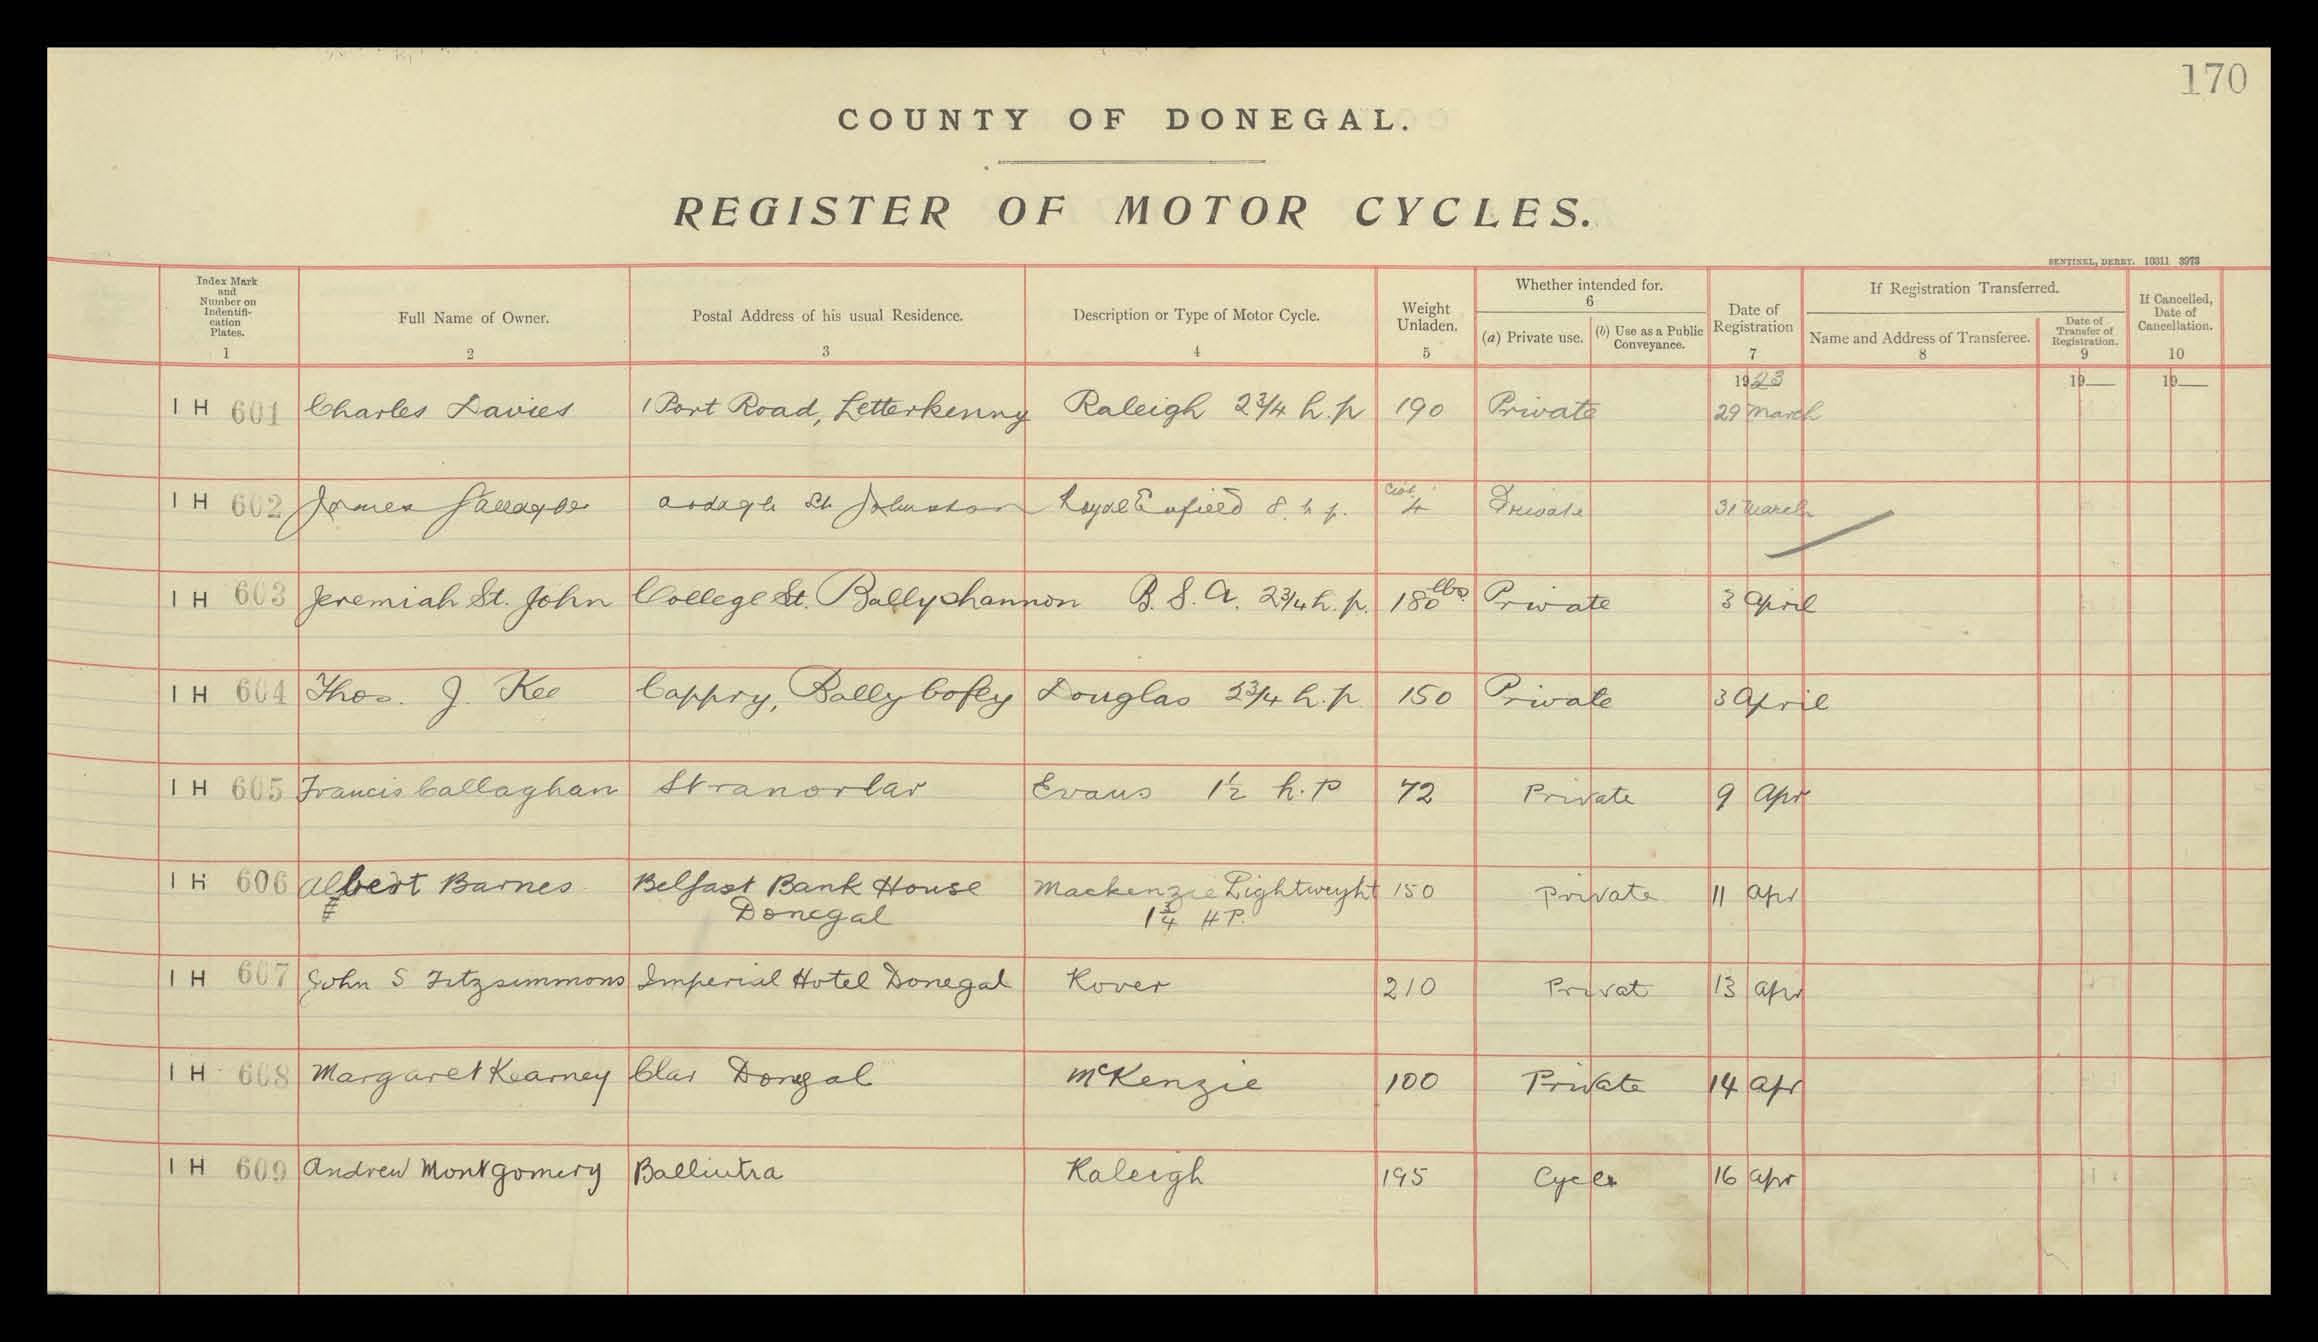 170
COUNTY OF DONEGAL.
REGISTER OF MOTOR CYCLES.
SENTINEL, DERRY. 10311 3973
Index Mark and Number on Indentifi-cation Plates. 1
Full Name of Owner. 2
Postal Address of his usual Residence. 3
Description or Type of Motor Cycle. 4
Weight Unladen. 5
Whether intended for. 6
(a) Private use.
(b) Use as a Public Conveyance.
Date of Registration 7
If Registration Transferred.
Name and Address of Transferee. 8
Date of Transfer of Registration. 9
If Cancelled, Date of Cancellation. 10
1923 19 19
I H 601 Charles Davies 1 Port Road, Letterkenny Raleigh 2¾ h.p 190 Private 29 March
I H 602 James Gallagher Ardagh St Johnston Royal Enfield 8 h.p. Cwt. 4 Private 31 March
I H 603 Jeremiah St. John College St. Ballyshannon B. S. A. 2¾ h.p. 180 lbs. Private 3 April
I H 604 Thos. J. Kee Cappry, Ballybofey Douglas 2¾ h.p 150 Private 3 April
I H 605 Francis Callaghan Stranorlar Evans 1½ h.P 72 Private 9 Apr
I H 606 Albert Barnes Belfast Bank House Mackenzie Lightweight 150 Private 11 Apr
Donegal 1¾ HP.
I H 607 John S Fitzsimmons Imperial Hotel Donegal Rover 210 Privat 13 Apr
I H 608 Margaret Kearney Clar Donegal McKenzie 100 Private 14 Apr
I H 609 Andrew Montgomery Ballintra Raleigh 195 Cycle 16 Apr